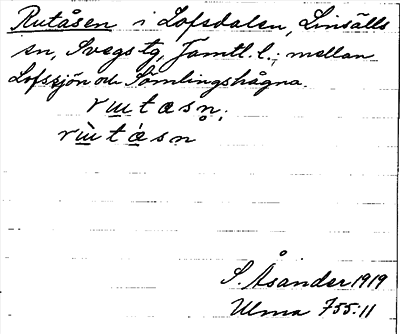 Rutåsen i Lofsdalen, Linsälls
sn, Svegs tg, Jämtl. l.; mellan
Lofssjön och Sömlingshågna.
rutasn̥.
rùtásn
S. Åsander 1919
Ulma 755:11